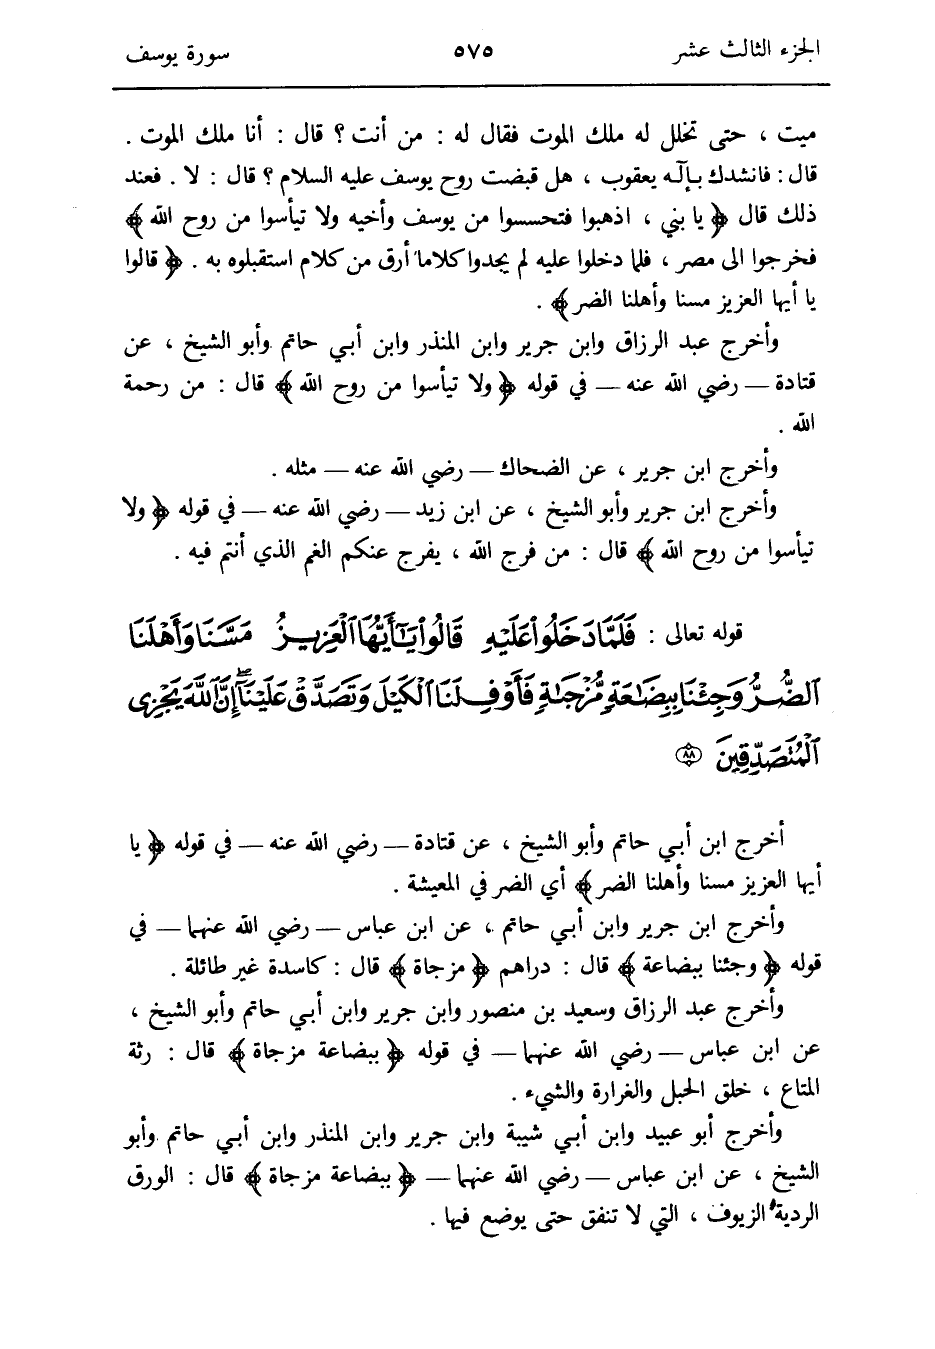 الجزء الثالث عشر ٥٧٥ سورة يوسف
ميت ، حتى تخلل له ملك الموت فقال له : من أنت ؟ قال : أنا ملك الموت .
قال : فانشدك بإآله يعقوب ، هل قبضت روح يوسف عليه السلام ؟ قال : لا . فعند
ذلك قال ﴿ يا بني ، اذهبوا فتحسسوا من يوسف وأخيه ولا تيأسوا من روح الله ﴾
فخرجوا الى مصر ، فلما دخلوا عليه لم يجدوا كلاما أرق من كلام استقبلوه به . ﴿ قالوا
يا أيها العزيز مسنا وأهلنا الضر ﴾ .
وأخرج عبد الرزاق وابن جرير وابن المنذر وابن أبي حاتم وأبو الشيخ ، عن
قتادة — رضي الله عنه — في قوله ﴿ ولا تيأسوا من روح الله ﴾ قال : من رحمة
الله .
وأخرج ابن جرير ، عن الضحاك — رضي الله عنه — مثله .
وأخرج ابن جرير وأبو الشيخ ، عن ابن زيد — رضي الله عنه — في قوله ﴿ ولا
تيأسوا من روح الله ﴾ قال : من فرج الله ، يفرج عنكم الغم الذي أنتم فيه .
قوله تعالى : فَلَمَّا دَخَلُوا۟ عَلَيْهِ قَالُوا۟ يَـٰٓأَيُّهَا ٱلْعَزِيزُ مَسَّنَا وَأَهْلَنَا
ٱلضُّرُّ وَجِئْنَا بِبِضَـٰعَةٍ مُّزْجَىٰةٍ فَأَوْفِ لَنَا ٱلْكَيْلَ وَتَصَدَّقْ عَلَيْنَآ ۖ إِنَّ ٱللَّهَ يَجْزِى
ٱلْمُتَصَدِّقِينَ ٨٨
أخرج ابن أبي حاتم وأبو الشيخ ، عن قتادة — رضي الله عنه — في قوله ﴿ يا
أيها العزيز مسنا وأهلنا الضر ﴾ أي الضر في المعيشة .
وأخرج ابن جرير وابن أبي حاتم ، عن ابن عباس — رضي الله عنهما — في
قوله ﴿ وجئنا ببضاعة ﴾ قال : دراهم ﴿ مزجاة ﴾ قال : كاسدة غير طائلة .
وأخرج عبد الرزاق وسعيد بن منصور وابن جرير وابن أبي حاتم وأبو الشيخ ،
عن ابن عباس — رضي الله عنهما — في قوله ﴿ ببضاعة مزجاة ﴾ قال : رثة
المتاع ، خلق الحبل والغرارة والشيء .
وأخرج أبو عبيد وابن أبي شيبة وابن جرير وابن المنذر وابن أبي حاتم وأبو
الشيخ ، عن ابن عباس — رضي الله عنهما — ﴿ ببضاعة مزجاة ﴾ قال : الورق
الردية الزيوف ، التي لا تنفق حتى يوضع فيها .